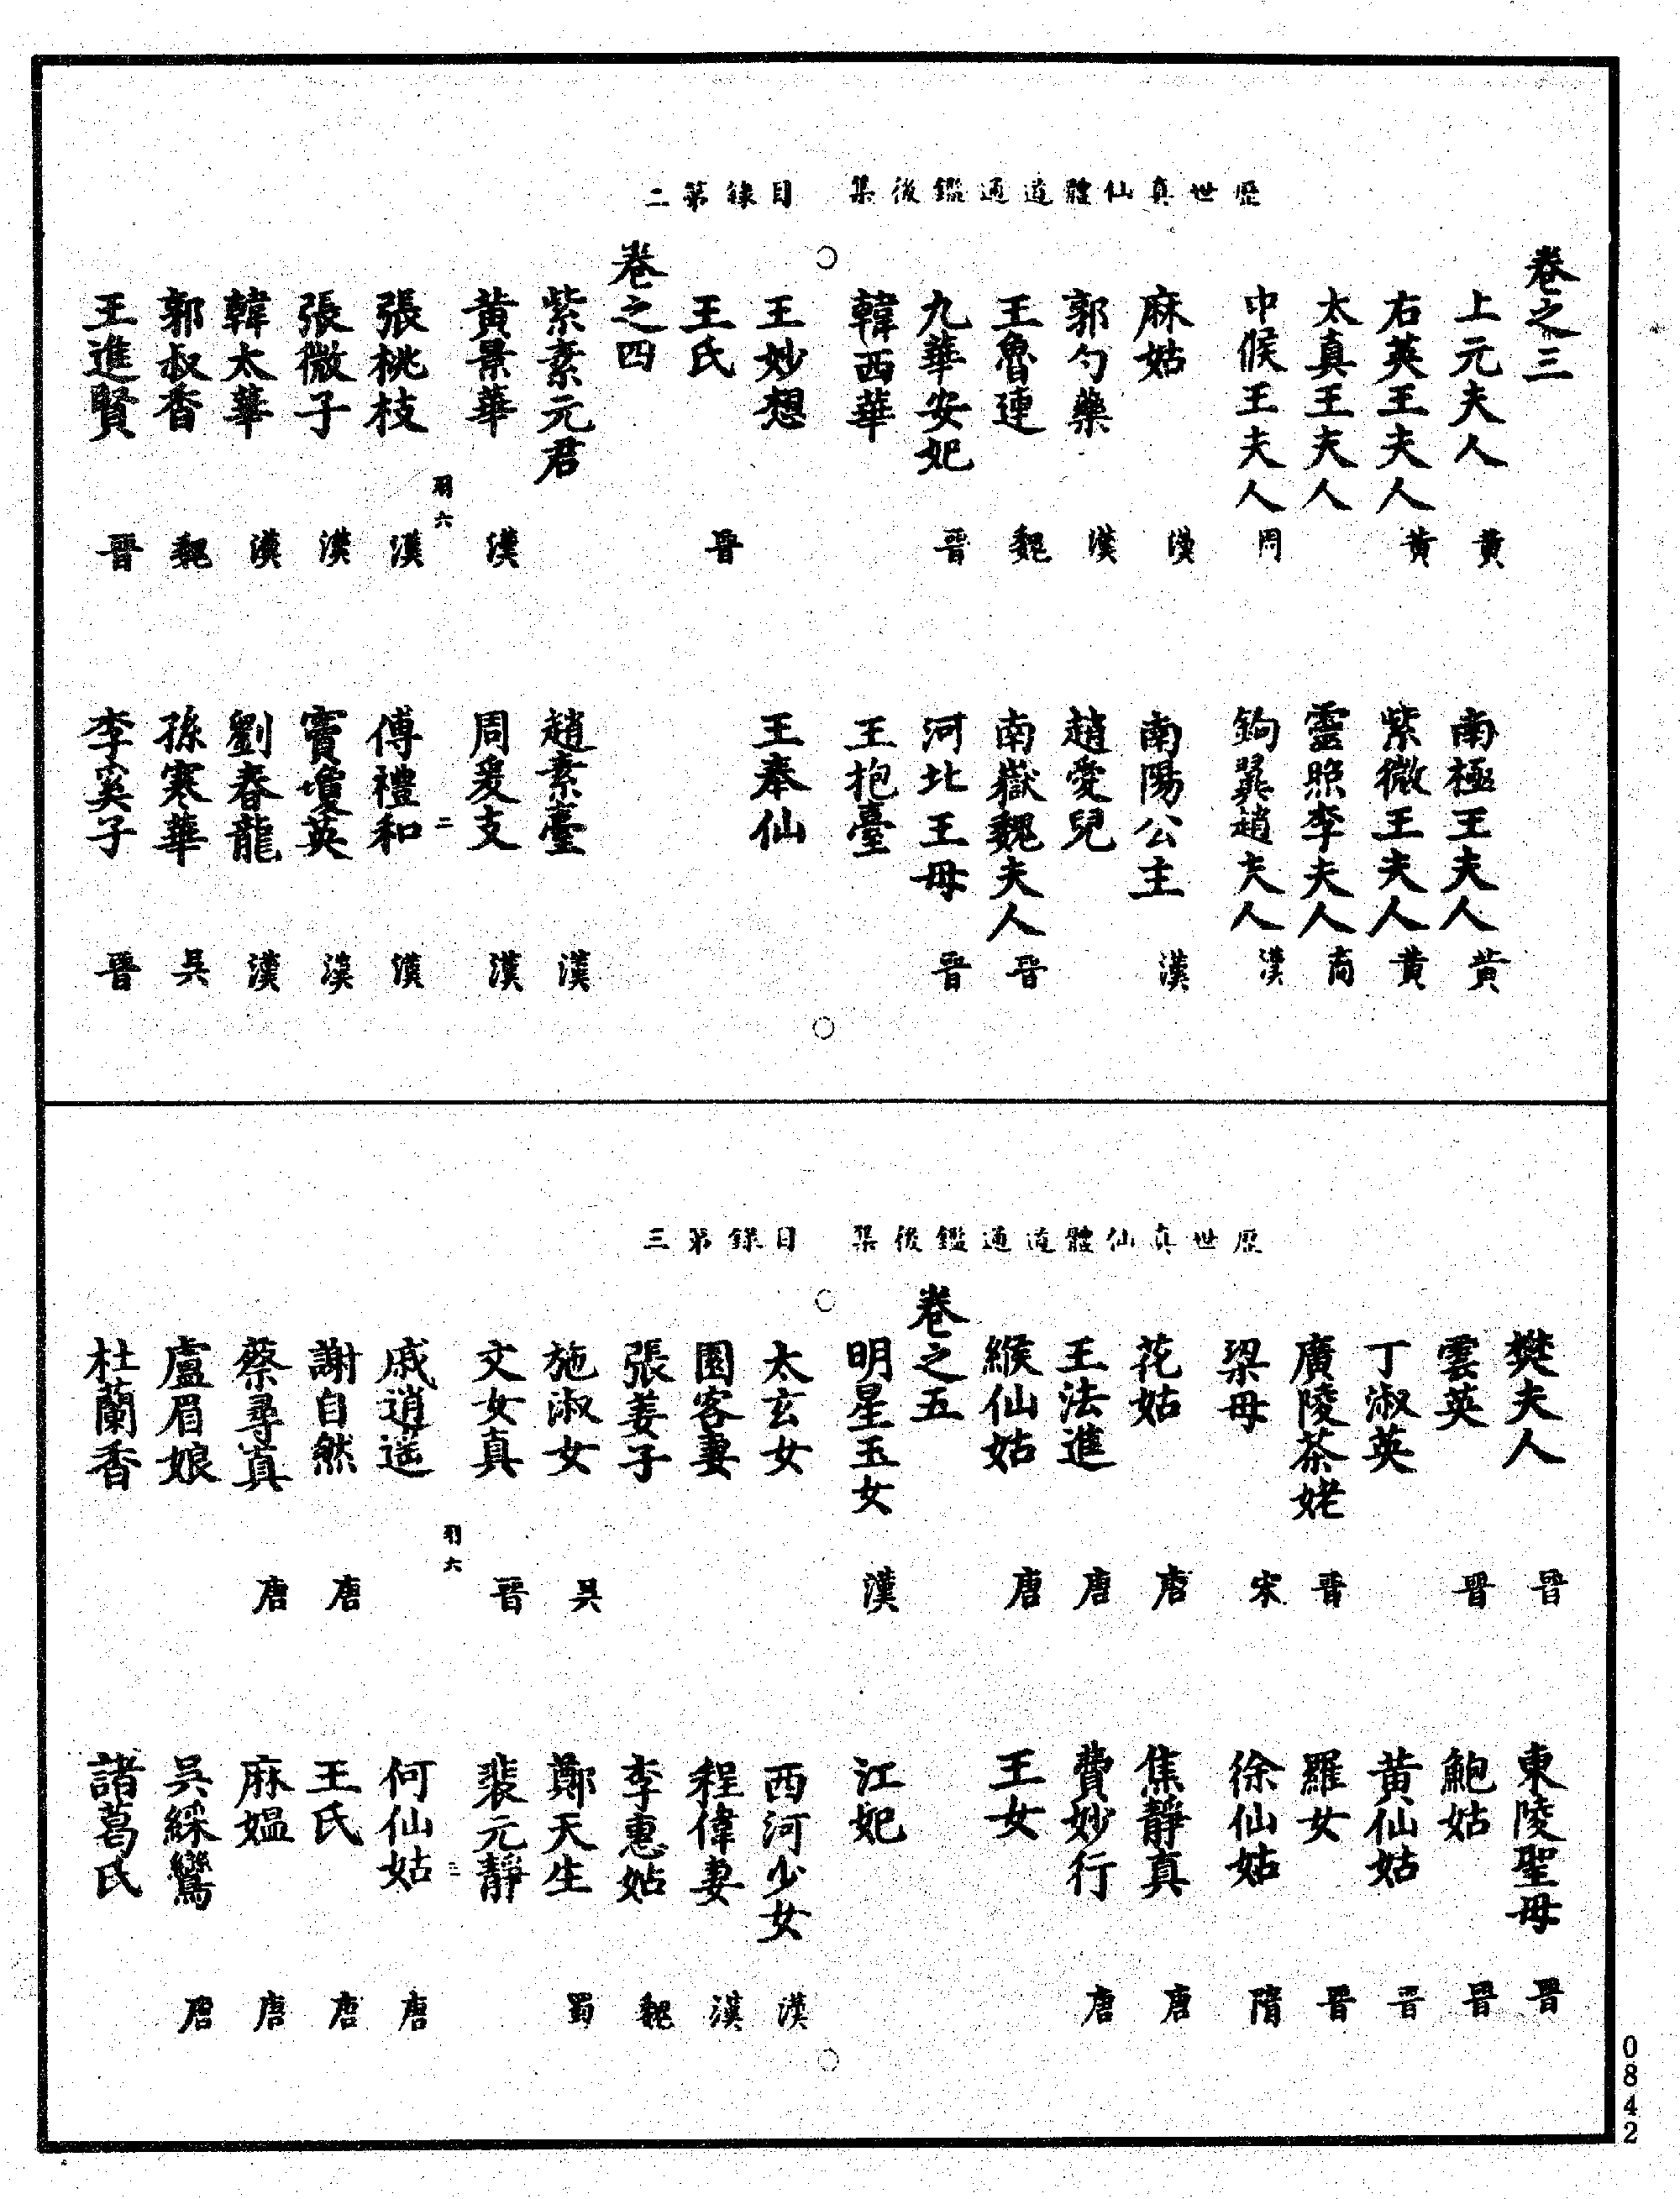 歷世真仙體道通鑑後集 目錄第二
卷之三
上元夫人 黃 南極王夫人 黃
右英王夫人 黃 紫微王夫人 黃
太真王夫人 靈照李夫人 商
中候王夫人 周 鉤翼趙夫人 漢
麻姑 漢 南陽公主 漢
郭勺藥 漢 趙愛兒
王魯連 魏 南嶽魏夫人 晉
九華安妃 晉 河北王母 晉
韓西華 王抱臺
王妙想 王奉仙
王氏 晉
卷之四
紫素元君 趙素臺 漢
黃景華 漢 周爰支 漢
羽六 二
張桃枝 漢 傅禮和 漢
張微子 漢 竇瓊英 漢
韓太華 漢 劉春龍 漢
郭叔香 魏 孫寒華 吳
王進賢 晉 李奚子 晉
歷世真仙體道通鑑後集 目錄第三
樊夫人 晉 東陵聖母 晉
雲英 晉 鮑姑 晉
丁淑英 黃仙姑 晉
廣陵茶姥 晉 羅女 晉
梁母 宋 徐仙姑 隋
花姑 唐 焦靜真 唐
王法進 唐 費妙行 唐
緱仙姑 唐 王女
卷之五
明星玉女 漢 江妃
太玄女 西河少女 漢
園客妻 程偉妻 漢
張姜子 李惠姑 魏
施淑女 吳 鄭天生 蜀
文女真 晉 裴元靜
羽六 三
戚逍遙 何仙姑 唐
謝自然 唐 王氏 唐
蔡尋真 唐 麻媪 唐
盧眉娘 吳綵鸞 唐
杜蘭香 諸葛氏
0842